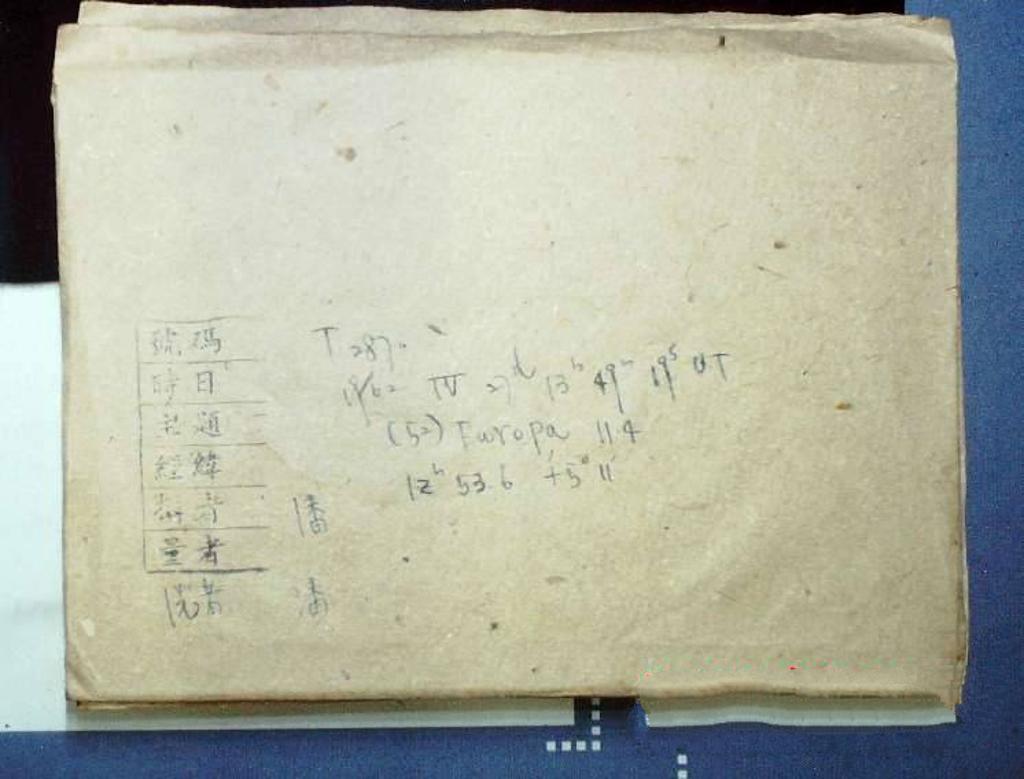 號碼 T 287
時日 1962 IV 27d 13h 49m 19s UT
主題 (52) Europa 11.4
經緯 12h 53.6 +5° 11'
者 潘
量者
者 潘